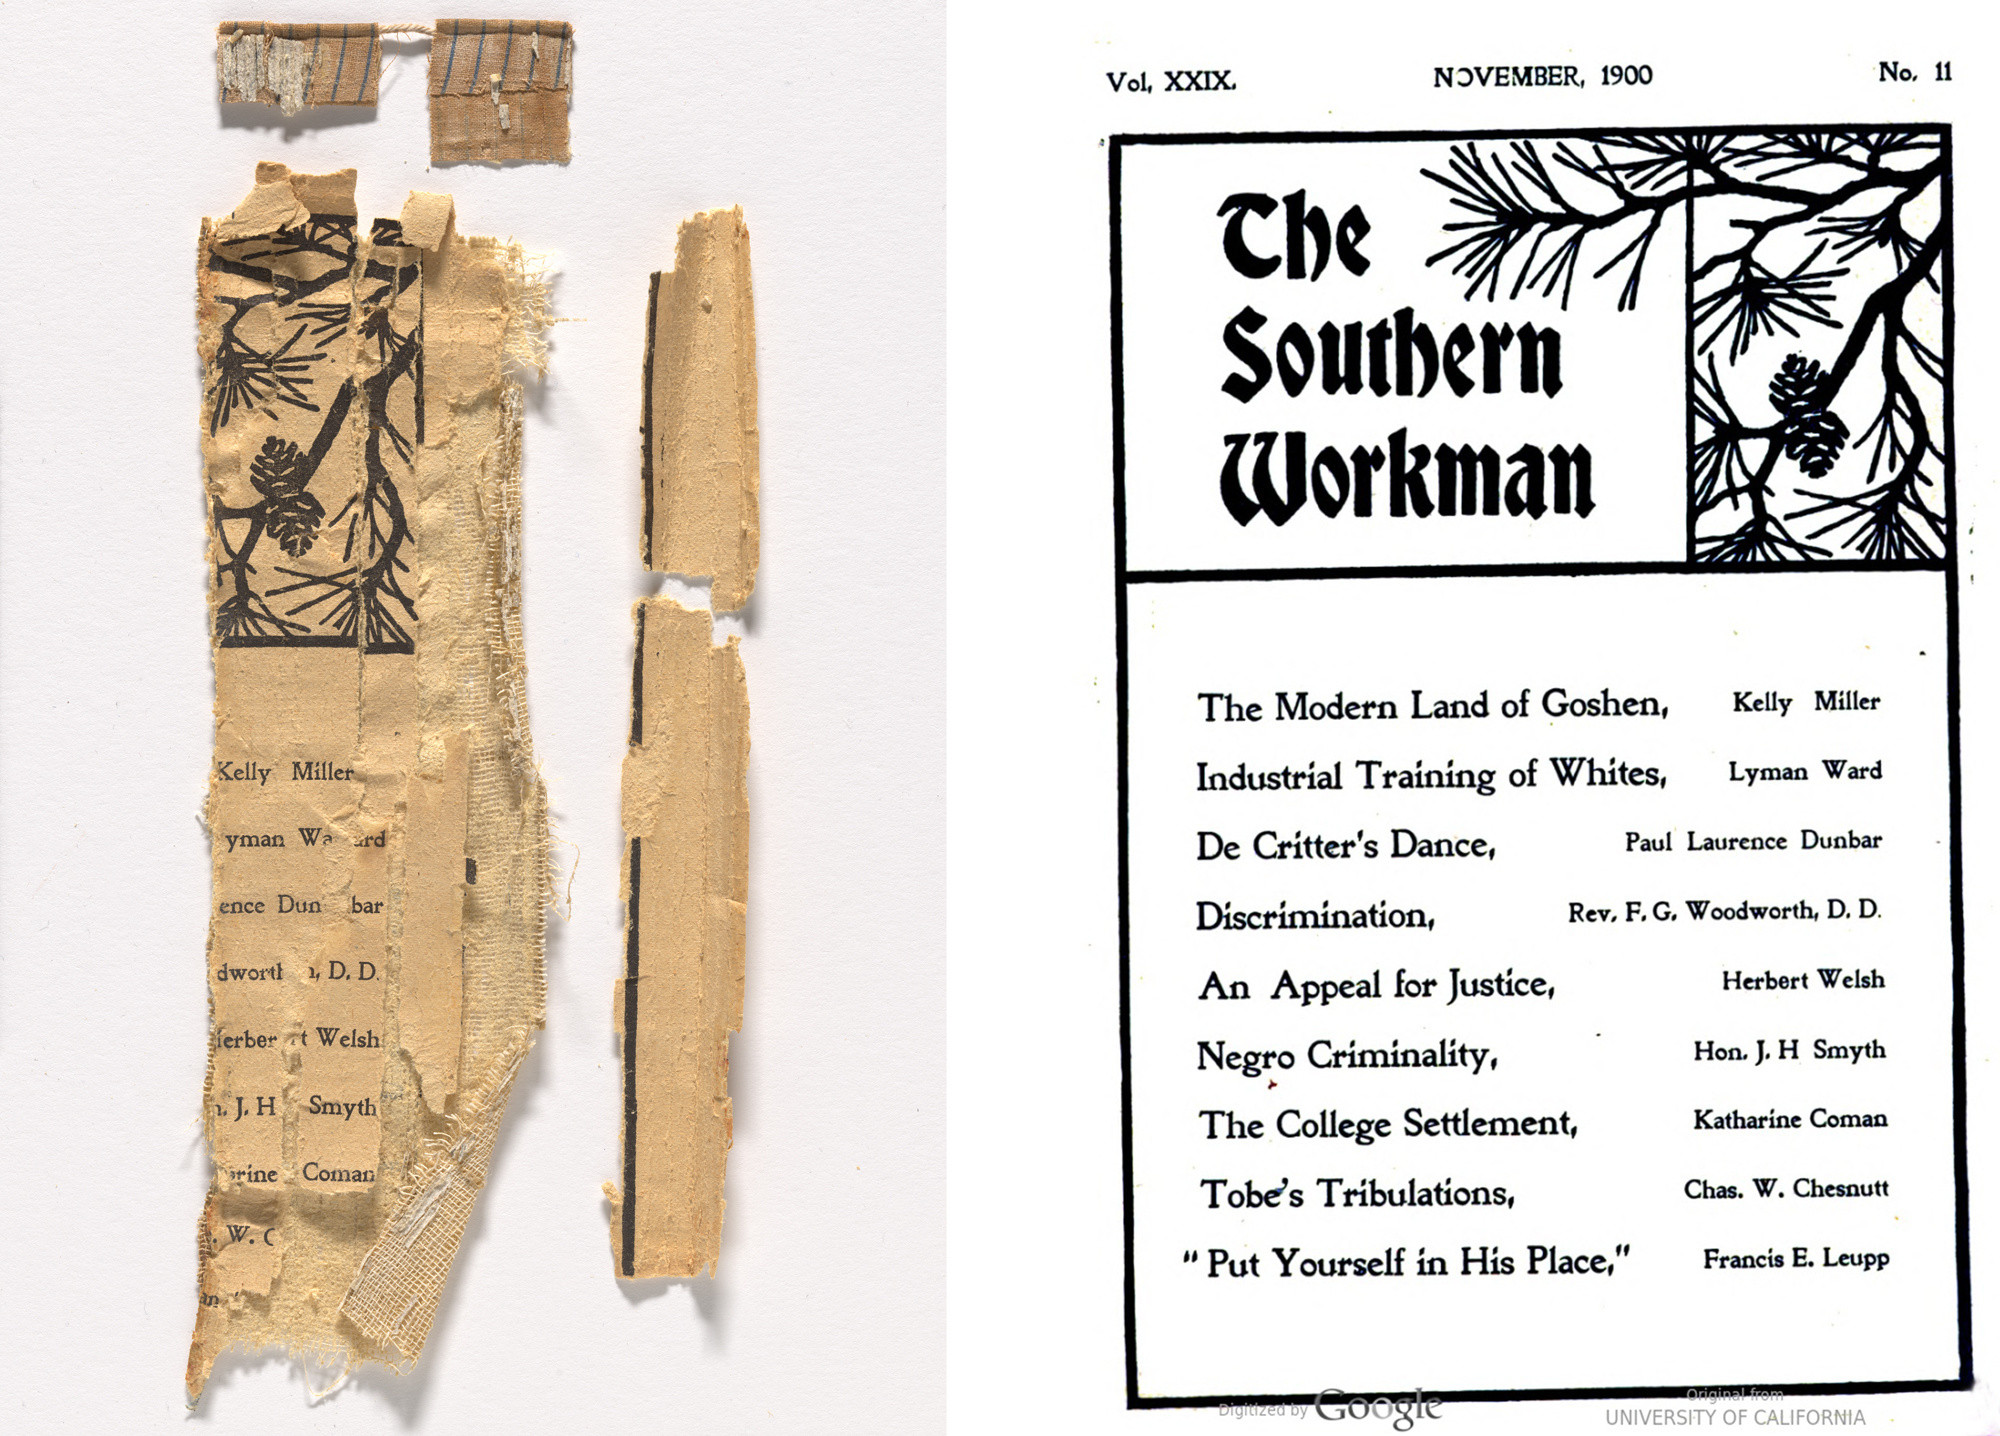 Kelly Miller
yman Wa ard
ence Dun bar
dworth n, D. D.
erber t Welsh
. J. H Smyth
rine Coman
. W. C
Vol. XXIX. NOVEMBER, 1900 No. 11
The
Southern
Workman
The Modern Land of Goshen, Kelly Miller
Industrial Training of Whites, Lyman Ward
De Critter's Dance, Paul Laurence Dunbar
Discrimination, Rev. F. G. Woodworth, D. D.
An Appeal for Justice, Herbert Welsh
Negro Criminality, Hon. J. H Smyth
The College Settlement, Katharine Coman
Tobe's Tribulations, Chas. W. Chesnutt
"Put Yourself in His Place," Francis E. Leupp
Digitized by Google
Original from
UNIVERSITY OF CALIFORNIA